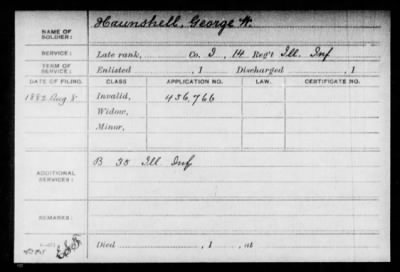 NAME OF SOLDIER: Haunshell, George W.
SERVICE: Late rank, Co. I, 14 Reg't Ill. Inf
TERM OF SERVICE: Enlisted , 1 Discharged , 1
DATE OF FILING. CLASS. APPLICATION NO. LAW. CERTIFICATE NO.
1882 Aug 8 Invalid, 456,766
Widow,
Minor,
ADDITIONAL SERVICES: B 35 Ill. Inf
REMARKS:
Died , 1 , at